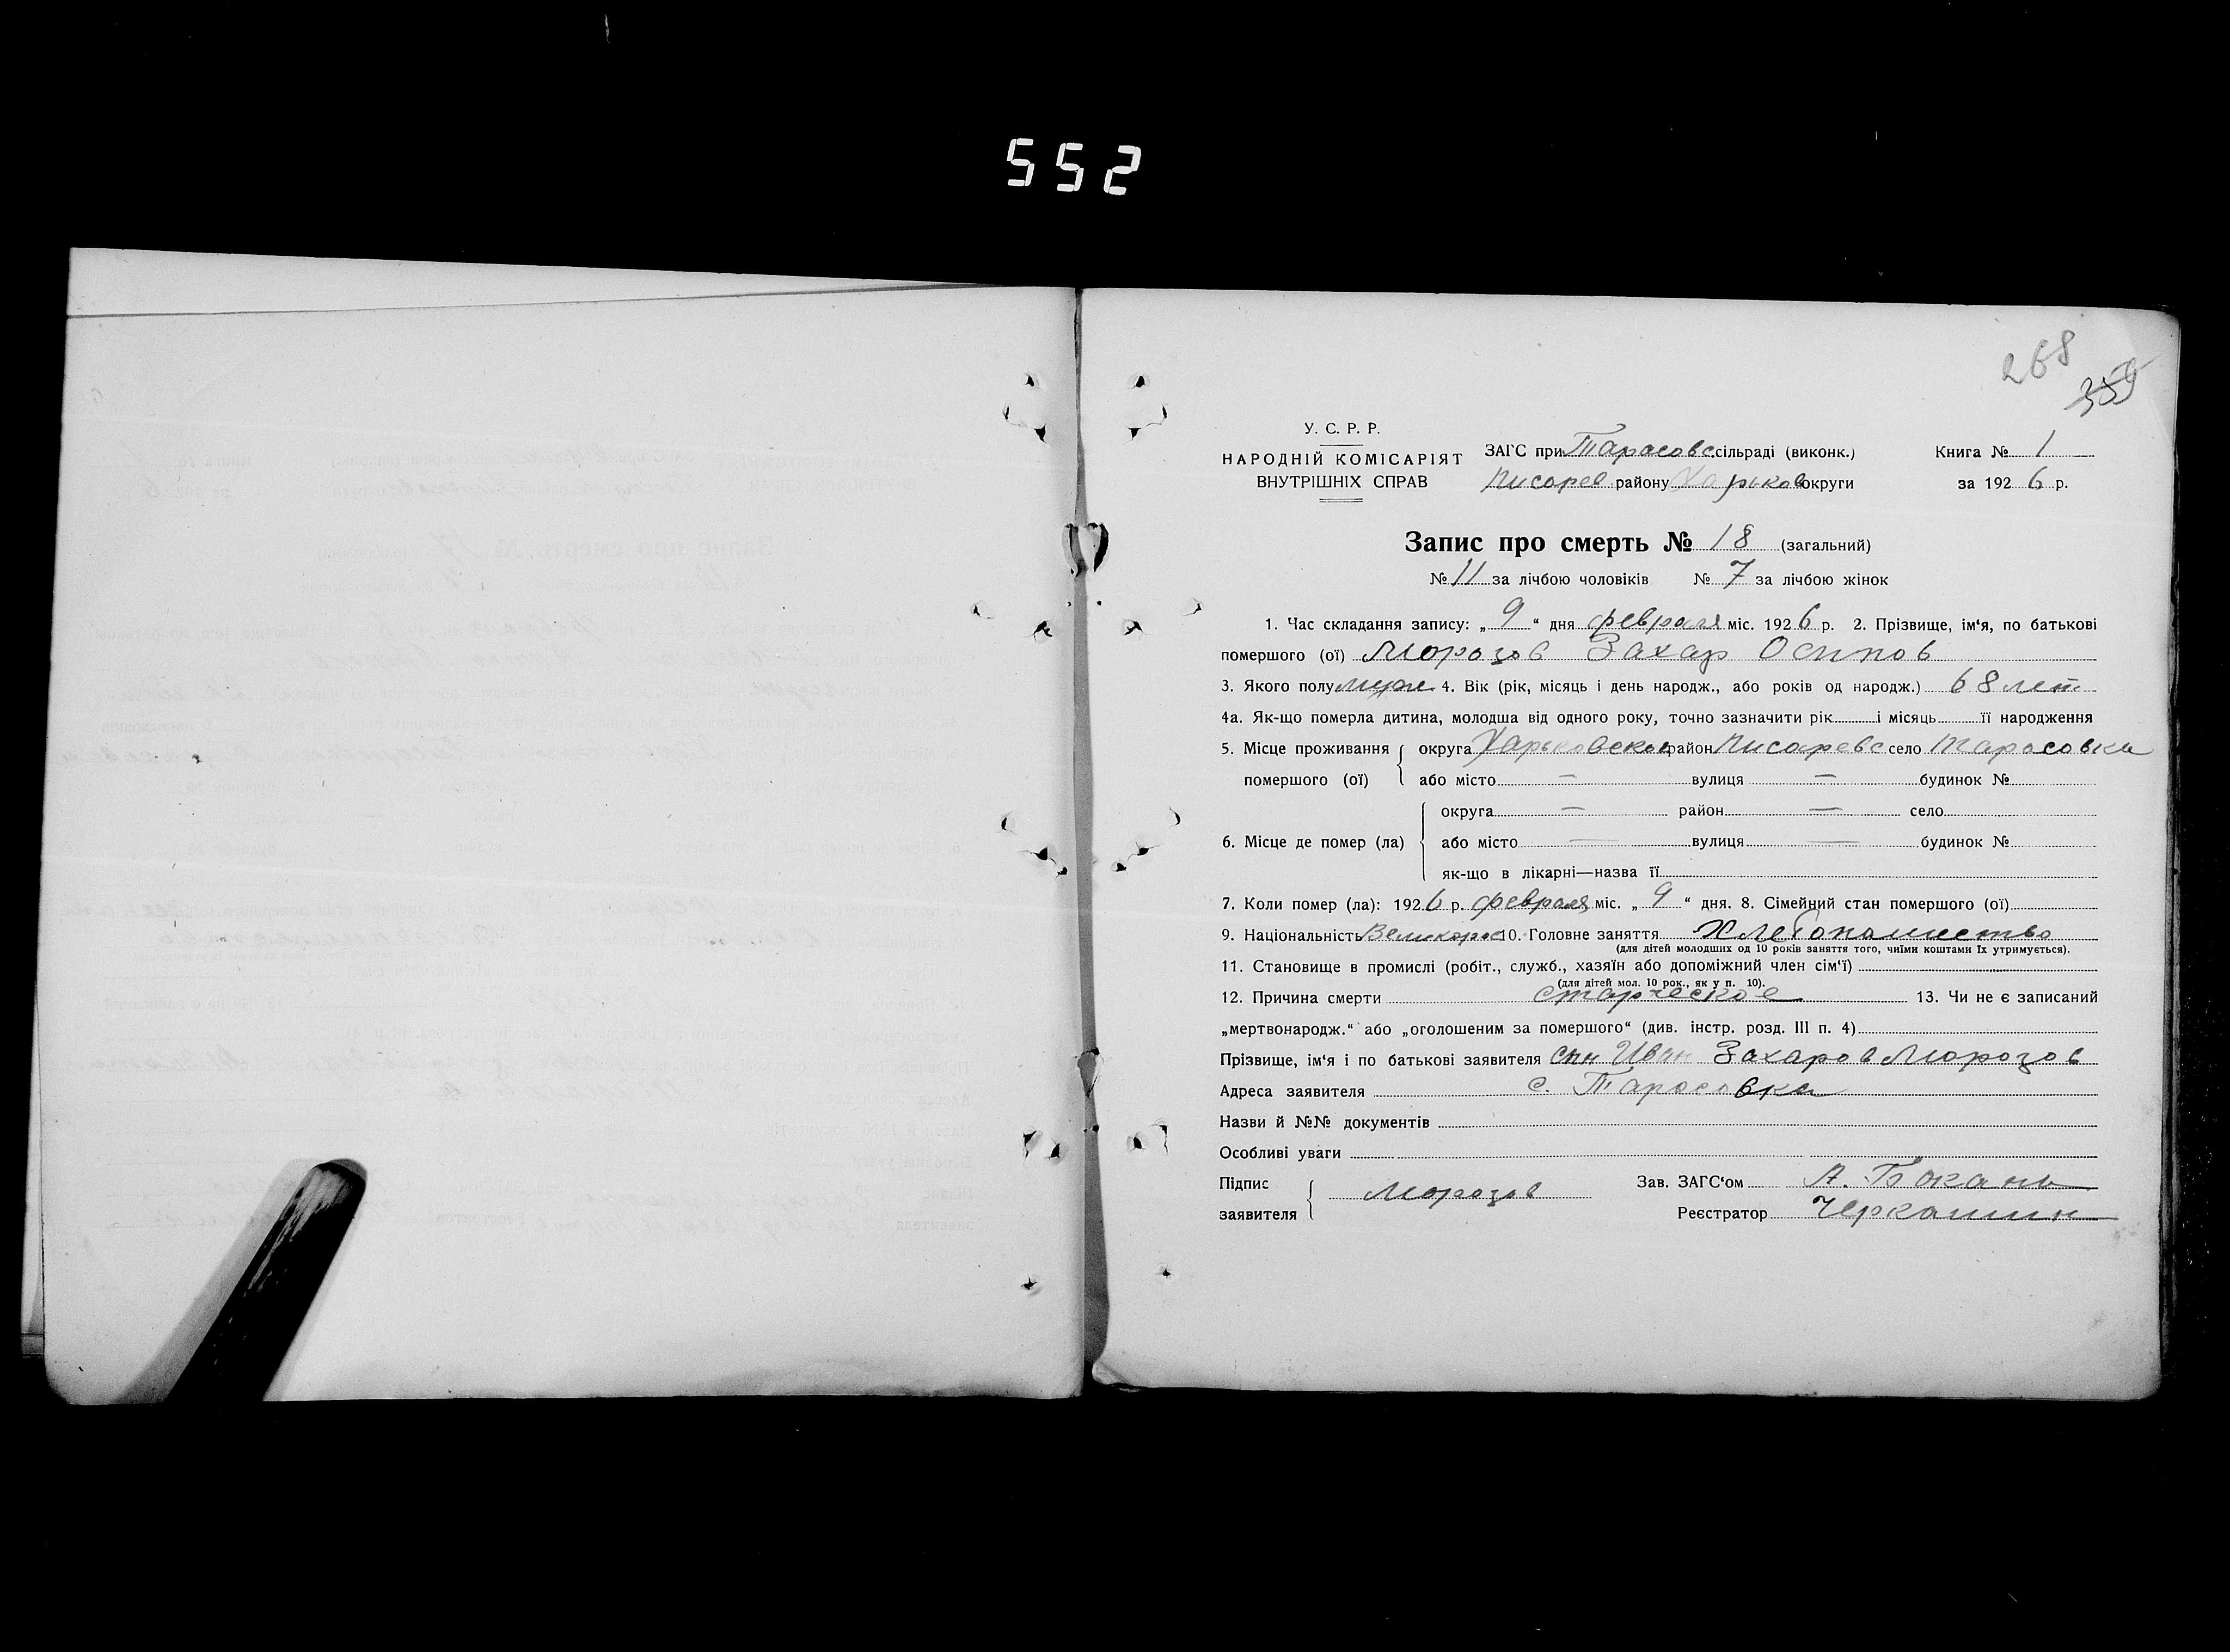 552
268
359
У. С. Р. Р.
НАРОДНІЙ КОМІСАРІЯТ
ВНУТРІШНІХ СПРАВ
ЗАГС при Тарасовс сільраді (виконк.)
Писарев району Харьков округи
Книга № 1
за 1926 р.
Запис про смерть № 18 (загальний)
№ 11 за лічбою чоловіків № 7 за лічбою жінок
1. Час складання запису: „ 9 “ дня февраля міс. 1926 р. 2. Прізвище, ім‘я, по батькові
помершого (ої) Морозов Захар Осипов
3. Якого полу муж. 4. Вік (рік, місяць і день народж., або років од народж.) 68 лет
4а. Як-що померла дитина, молодша від одного року, точно зазначити рік і місяць її народження
5. Місце проживання помершого (ої) округа Харьковской район Писаревс село Тарасовка
або місто — вулиця — будинок №
6. Місце де помер (ла) округа — район — село
або місто — вулиця — будинок №
як-що в лікарні—назва її
7. Коли помер (ла): 1926 р. февраля міс. „ 9 “ дня. 8. Сімейний стан помершого (ої)
9. Національність Великорос 10. Головне заняття Хлебопашество
(для дітей молодших од 10 років заняття того, чиїми коштами їх утримується).
11. Становище в промислі (робіт., служб., хазяїн або допоміжний член сім‘ї)
(для дітей мол. 10 рок., як у п. 10).
12. Причина смерти старческое 13. Чи не є записаний
„мертвонародж.“ або „оголошеним за помершого“ (див. інстр. розд. III п. 4)
Прізвище, ім‘я і по батькові заявителя сын Иван Захаров Морозов
Адреса заявителя с. Тарасовка
Назви й №№ документів
Особливі уваги
Підпис заявителя Морозов
Зав. ЗАГС‘ом А. Бокань
Реєстратор Черкашин